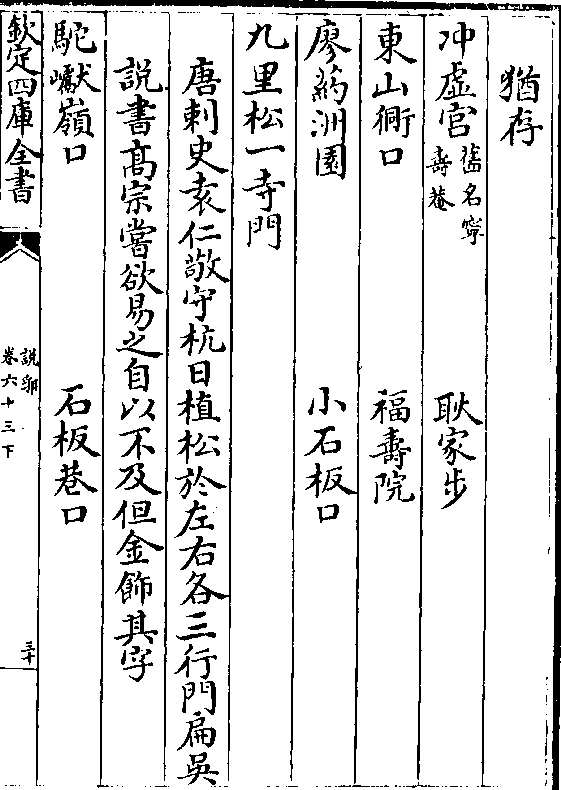 猶存
冲虛宫舊名寧壽菴 耿家步
東山衕口 福壽院
廖藥洲園 小石板口
九里松一寺門
唐刺史袁仁敬守杭日植松於左右各三行門扁吳
説書髙宗嘗欲易之自以不及但金飾其字
駝巘嶺口 石板巷口
欽定四庫全書
説郛
卷六十三下
三十